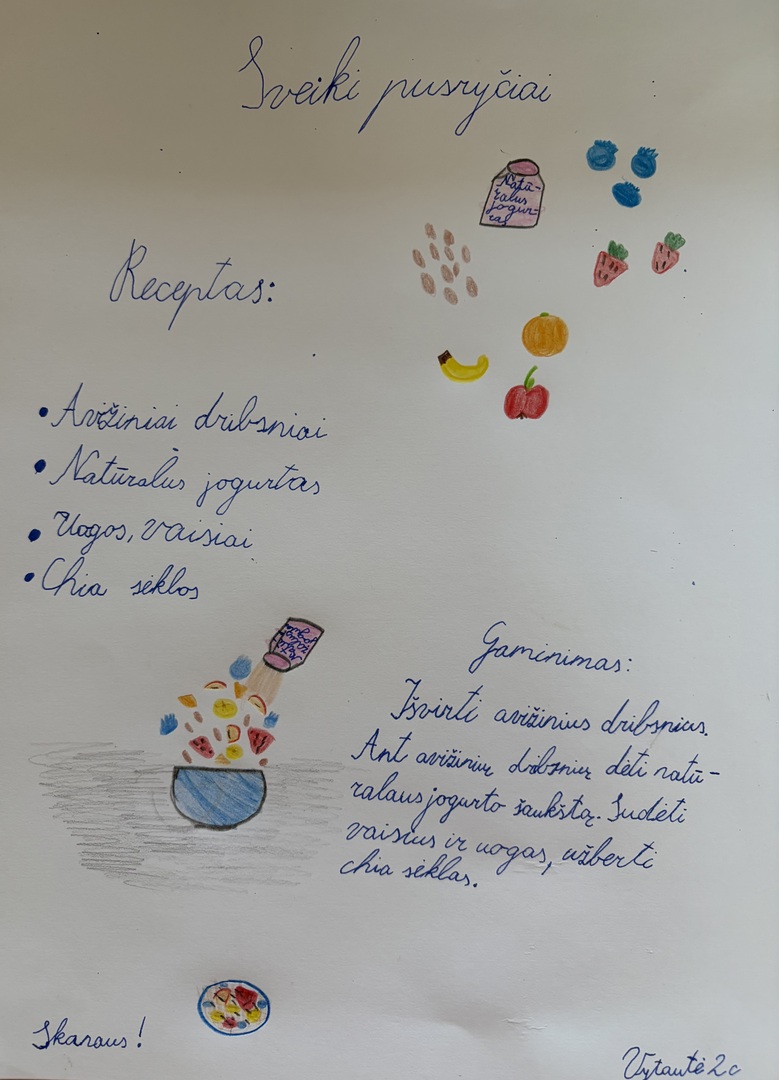 Sveiki pusryčiai
Natū-
ralus
jogur-
tas
Receptas:
• Avižiniai dribsniai
• Natūralus jogurtas
• Uogos, vaisiai
• Chia sėklos
Gaminimas:
Išvirti avižinius dribsnius.
Ant avižinių dribsnių dėti natū-
ralaus jogurto šaukštą. Sudėti
vaisius ir uogas, užberti
chia sėklas.
Skanaus!
Vytautė 2c